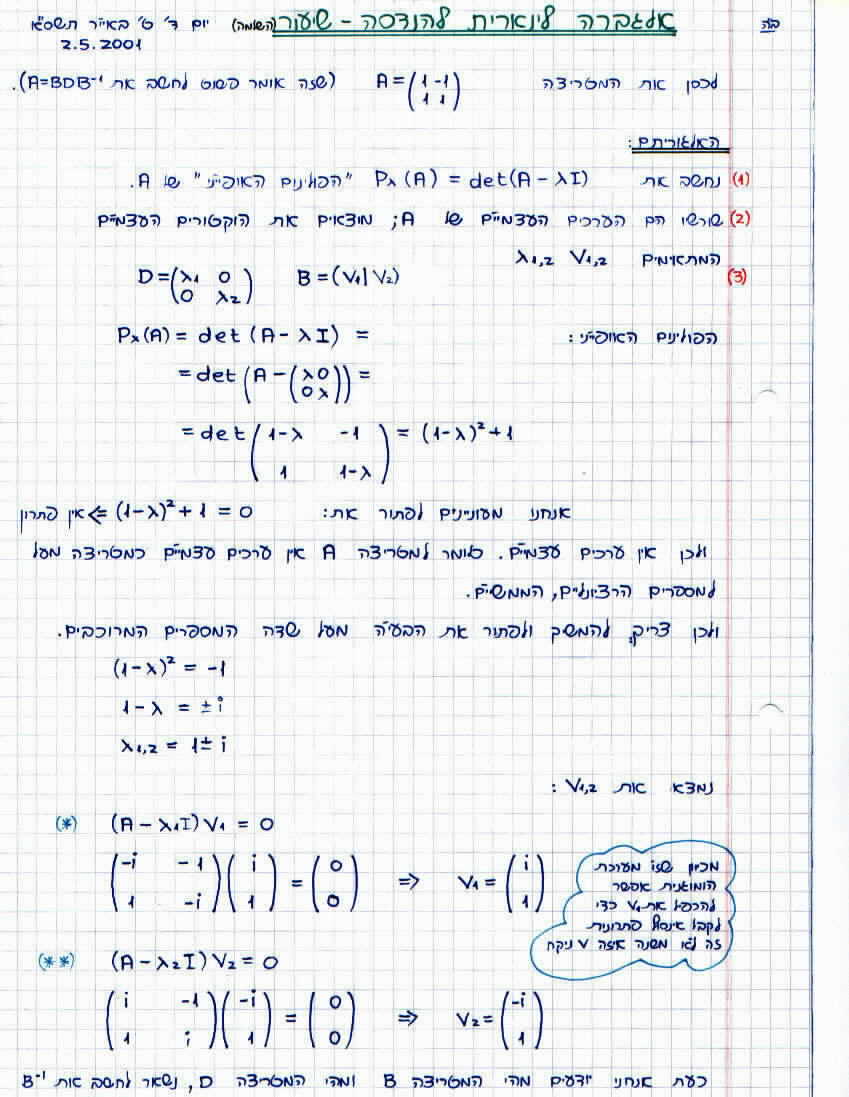 בה
אלגברה לינארית להנדסה - שיעור (השלמה) יום ד' ט' באייר תשס"א
2.5.2001
לכסן את המטריצה A = (1 -1 / 1 1) (שזה אומר פשוט לחשב את A=BDB⁻¹).
האלגוריתם:
(1) נחשב את Pλ(A) = det(A - λI) "הפולינים האופייני" של A.
(2) שורשיו הם הערכים העצמיים של A; מוצאים את הוקטורים העצמיים
המתאימים V₁,₂ λ₁,₂
(3) B = (V₁|V₂) D = (λ₁ 0 / 0 λ₂)
הפולינים האופייני: Pλ(A) = det (A - λI) =
= det (A - (λ 0 / 0 λ)) =
= det (1-λ -1 / 1 1-λ) = (1-λ)² + 1
אנחנו מעוניינים לפתור את: (1-λ)² + 1 = 0 ⇐ אין פתרון
ולכן אין ערכים עצמיים. כלומר למטריצה A אין ערכים עצמיים כמטריצה מעל
למספרים הרציונליים, הממשיים.
ולכן צריך להמשיך ולפתור את הבעיה מעל שדה המספרים המרוכבים.
(1-λ)² = -1
1-λ = ±i
λ₁,₂ = 1±i
נמצא את V₁,₂ :
(*) (A - λ₁I)V₁ = 0
(-i -1 / 1 -i)(i / 1) = (0 / 0) ⇒ V₁ = (i / 1)
מכיון שזו מערכת
הומוגנית אפשר
להכפיל את V₁ כדי
לקבל אינסוף פתרונות
זה לא משנה איזה V ניקח
(**) (A - λ₂I)V₂ = 0
(i -1 / 1 i)(-i / 1) = (0 / 0) ⇒ V₂ = (-i / 1)
כעת אנחנו יודעים מהי המטריצה B ומהי המטריצה D, נשאר לחשב את B⁻¹